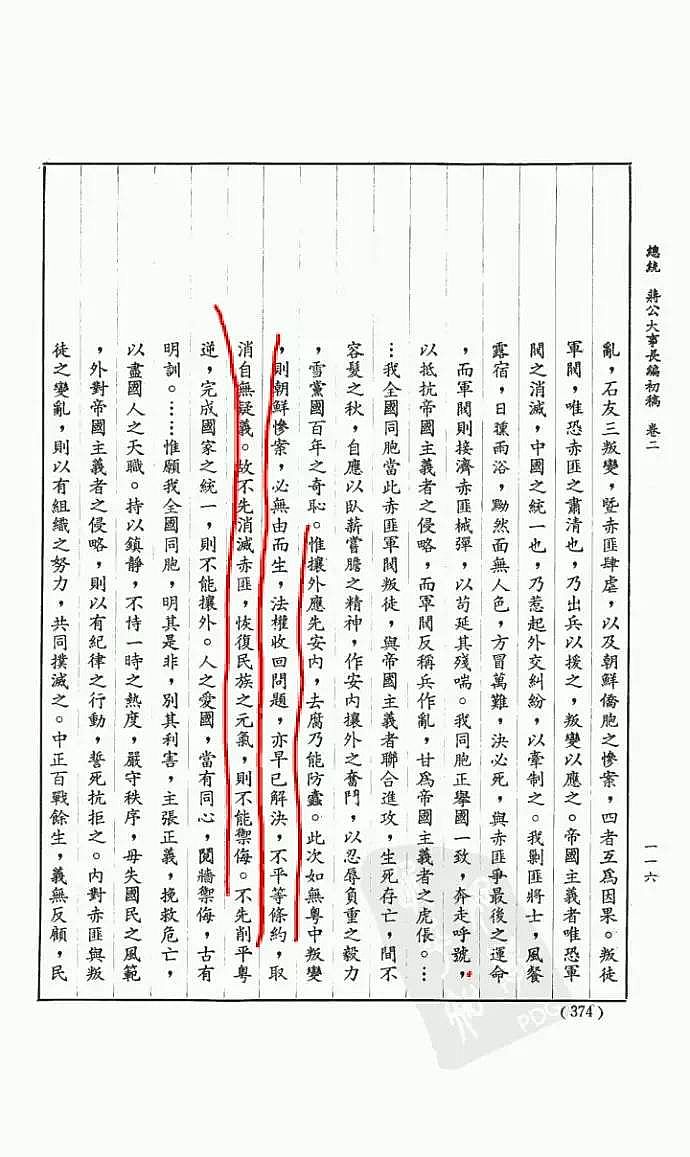 總統　蔣公大事長編初稿　卷二
一一六
亂，石友三叛變，暨赤匪肆虐，以及朝鮮僑胞之慘案，四者互為因果。叛徒
軍閥，唯恐赤匪之肅清也，乃出兵以援之，叛變以應之。帝國主義者唯恐軍
閥之消滅，中國之統一也，乃惹起外交糾紛，以牽制之。我剿匪將士，風餐
露宿，日曝雨浴，黝然面無人色，方冒萬難，決必死，與赤匪爭最後之運命
，而軍閥則接濟赤匪械彈，以苟延其殘喘。我同胞正舉國一致，奔走呼號，
以抵抗帝國主義者之侵略，而軍閥反稱兵作亂，甘為帝國主義者之虎倀。…
…我全國同胞當此赤匪軍閥叛徒，與帝國主義者聯合進攻，生死存亡，間不
容髮之秋，自應以臥薪嘗膽之精神，作安內攘外之奮鬥，以忍辱負重之毅力
，雪黨國百年之奇恥。惟攘外應先安內，去腐乃能防蠹。此次如無粵中叛變
，則朝鮮慘案，必無由而生，法權收回問題，亦早已解決，不平等條約，取
消自無疑義。故不先消滅赤匪，恢復民族之元氣，則不能禦侮。不先削平粵
逆，完成國家之統一，則不能攘外。人之愛國，當有同心，鬩牆禦侮，古有
明訓。……惟願我全國同胞，明其是非，別其利害，主張正義，挽救危亡，
以盡國人之天職。持以鎮靜，不恃一時之熱度，嚴守秩序，毋失國民之風範
，外對帝國主義者之侵略，則以有紀律之行動，誓死抗拒之。內對赤匪與叛
徒之變亂，則以有組織之努力，共同撲滅之。中正百戰餘生，義無反顧，民
(374)
PDG